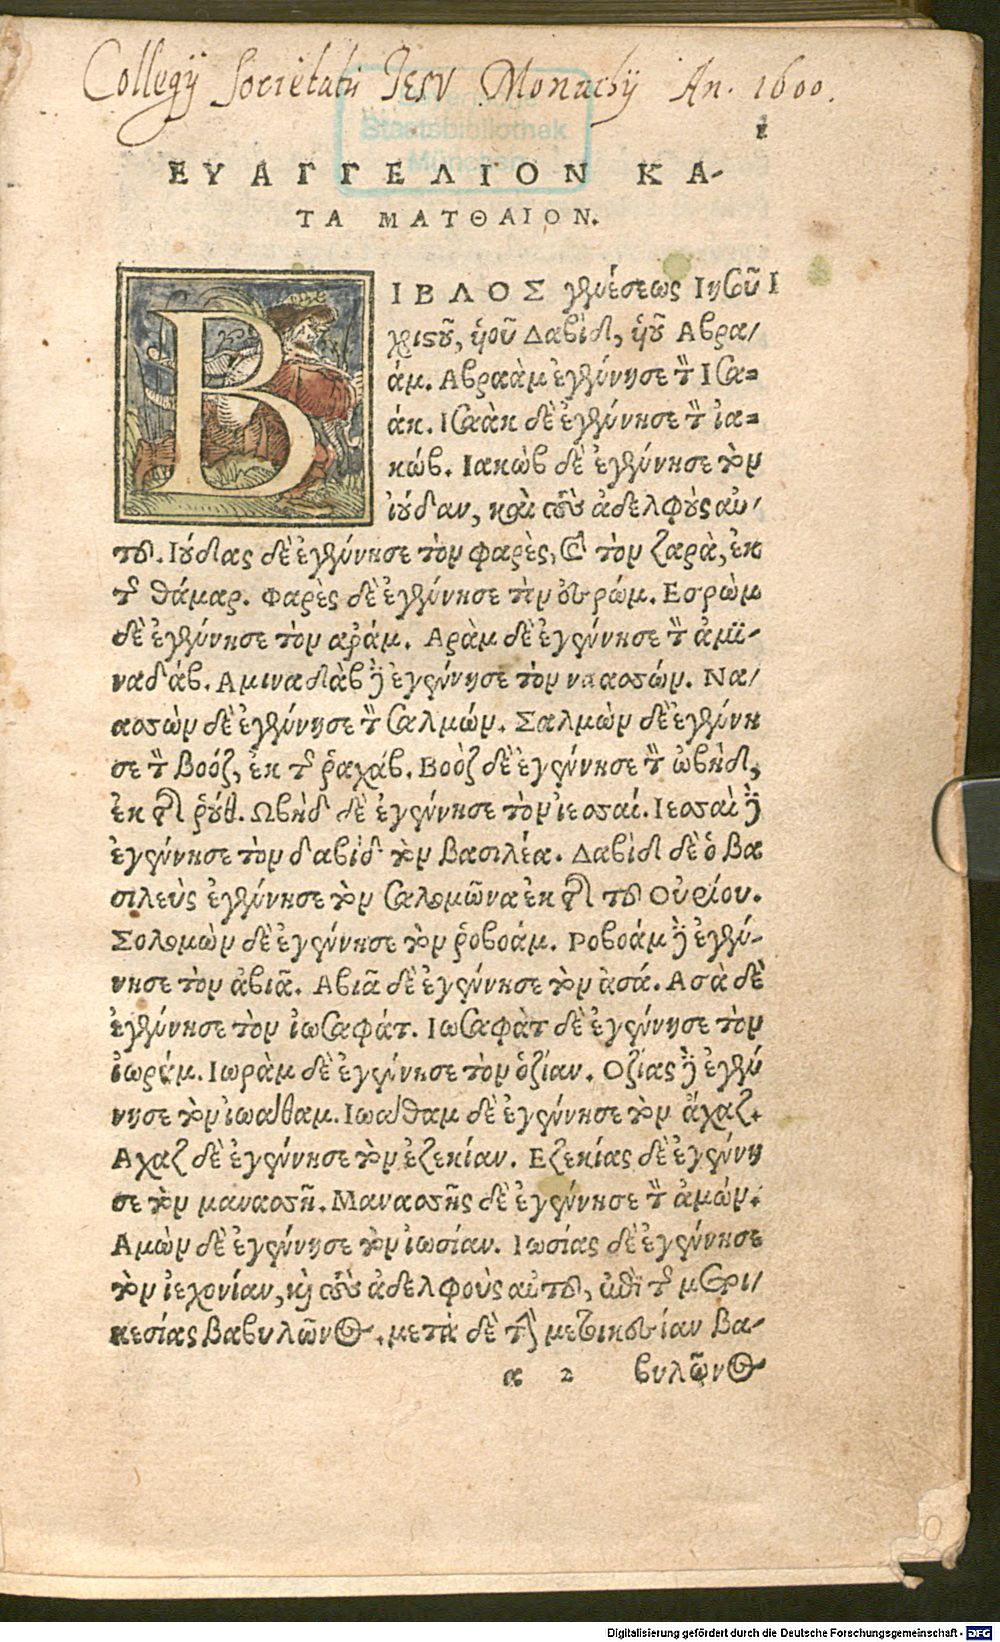 Collegij Societatis Jesu Monachij An. 1600.
Bayerische
Staatsbibliothek
München
1
ΕΥΑΓΓΕΛΙΟΝ ΚΑ-
ΤΑ ΜΑΤΘΑΙΟΝ.
ΒΙΒΛΟΣ γενέσεως Ιησοῦ I
χριστοῦ, ὑιοῦ Δαβὶδ, ὑιοῦ Αβρα/
άμ. Αβραὰμ ἐγέννησε τὸν Ισα=
άκ. Ισαὰκ δὲ ἐγέννησε τὸν ἰα=
κώβ. Ιακὼβ δὲ ἐγέννησε τὸν
ἰούδαν, καὶ τοὺς ἀδελφοὺς αὐ/
τοῦ. Ιούδας δὲ ἐγέννησε τὸν φαρὲς, καὶ τὸν ζαρὰ, ἐκ
τῆς θάμαρ. Φαρὲς δὲ ἐγέννησε τὸν ἐσρώμ. Εσρὼμ
δὲ ἐγέννησε τὸν αράμ. Αρὰμ δὲ ἐγέννησε τὸν ἀμι-
ναδάβ. Αμιναδὰβ δὲ ἐγέννησε τὸν ναασσών. Να/
ασσὼν δὲ ἐγέννησε τὸν Σαλμών. Σαλμὼν δὲ ἐγέννη
σε τὸν Βοόζ, ἐκ τῆς ῥαχάβ. Βοὸζ δὲ ἐγέννησε τὸν ὠβὴδ,
ἐκ τῆς ῥούθ. Ωβὴδ δὲ ἐγέννησε τὸν ἰεσσαί. Ιεσσαὶ δὲ
ἐγέννησε τὸν δαβὶδ τὸν βασιλέα. Δαβὶδ δὲ ὁ βα
σιλεὺς ἐγέννησε τὸν Σαλομῶνα ἐκ τῆς τοῦ Οὐρίου.
Σολομὼν δὲ ἐγέννησε τὸν ῥοβοάμ. Ροβοάμ δὲ ἐγέν-
νησε τὸν ἀβιᾶ. Αβιᾶ δὲ ἐγέννησε τὸν ἀσά. Ασὰ δὲ
ἐγέννησε τὸν ἰωσαφάτ. Ιωσαφὰτ δὲ ἐγέννησε τὸν
ἰωράμ. Ιωρὰμ δὲ ἐγέννησε τὸν ὀζίαν. Οζίας δὲ ἐγέν
νησε τὸν ἰωάθαμ. Ιωάθαμ δὲ ἐγέννησε τὸν ἄχαζ.
Αχαζ δὲ ἐγέννησε τὸν ἐζεκίαν. Εζεκίας δὲ ἐγέννη
σε τὸν μανασσῆ. Μανασσῆς δὲ ἐγέννησε τὸν ἀμών.
Αμὼν δὲ ἐγέννησε τὸν ἰωσίαν. Ιωσίας δὲ ἐγέννησε
τὸν ἰεχονίαν, καὶ τοὺς ἀδελφοὺς αὐτοῦ, ἐπὶ τῆς μετοι/
κεσίας βαβυλῶνος. μετὰ δὲ τὴν μετοικεσίαν βα-
α 2 βυλῶνος
Digitalisierung gefördert durch die Deutsche Forschungsgemeinschaft - DFG